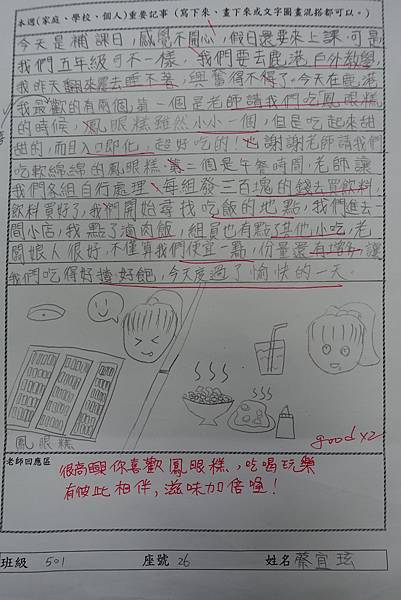 本週(家庭、學校、個人)重要記事(寫下來、畫下來或文字圖畫混搭都可以。)
今天是補課日,感覺不開心,假日還要來上課。可是
我們五年級可不一樣,我們要去鹿港戶外教學,
我昨天翻來覆去睡不著,興奮得不得了。今天在鹿港
我最歡的有兩個,第一個是老師請我們吃鳳眼糕
的時候,鳳眼糕雖然小小一個,但是吃起來甜
甜的,而且入口即化,超好吃的!也謝謝老師請我們
吃軟綿綿的鳳眼糕。第二個是午餐時間,老師讓
我們各組自行處理,每組發三百塊的錢去買飲料,
飲料買好了,我們開始尋找吃飯的地點,我們進去一
間小店,我點了滷肉飯,組員也有點了其他小吃,老
闆娘人很好,不僅算我們便宜一點,份量還有增多,讓
我們吃得好撐好飽,今天度過了愉快的一天。
鳳眼糕
good x2
老師回應區
很高興你喜歡鳳眼糕,吃喝玩樂
有彼此相伴,滋味加倍喔!
班級 501 座號 26 姓名 蔡宜玹